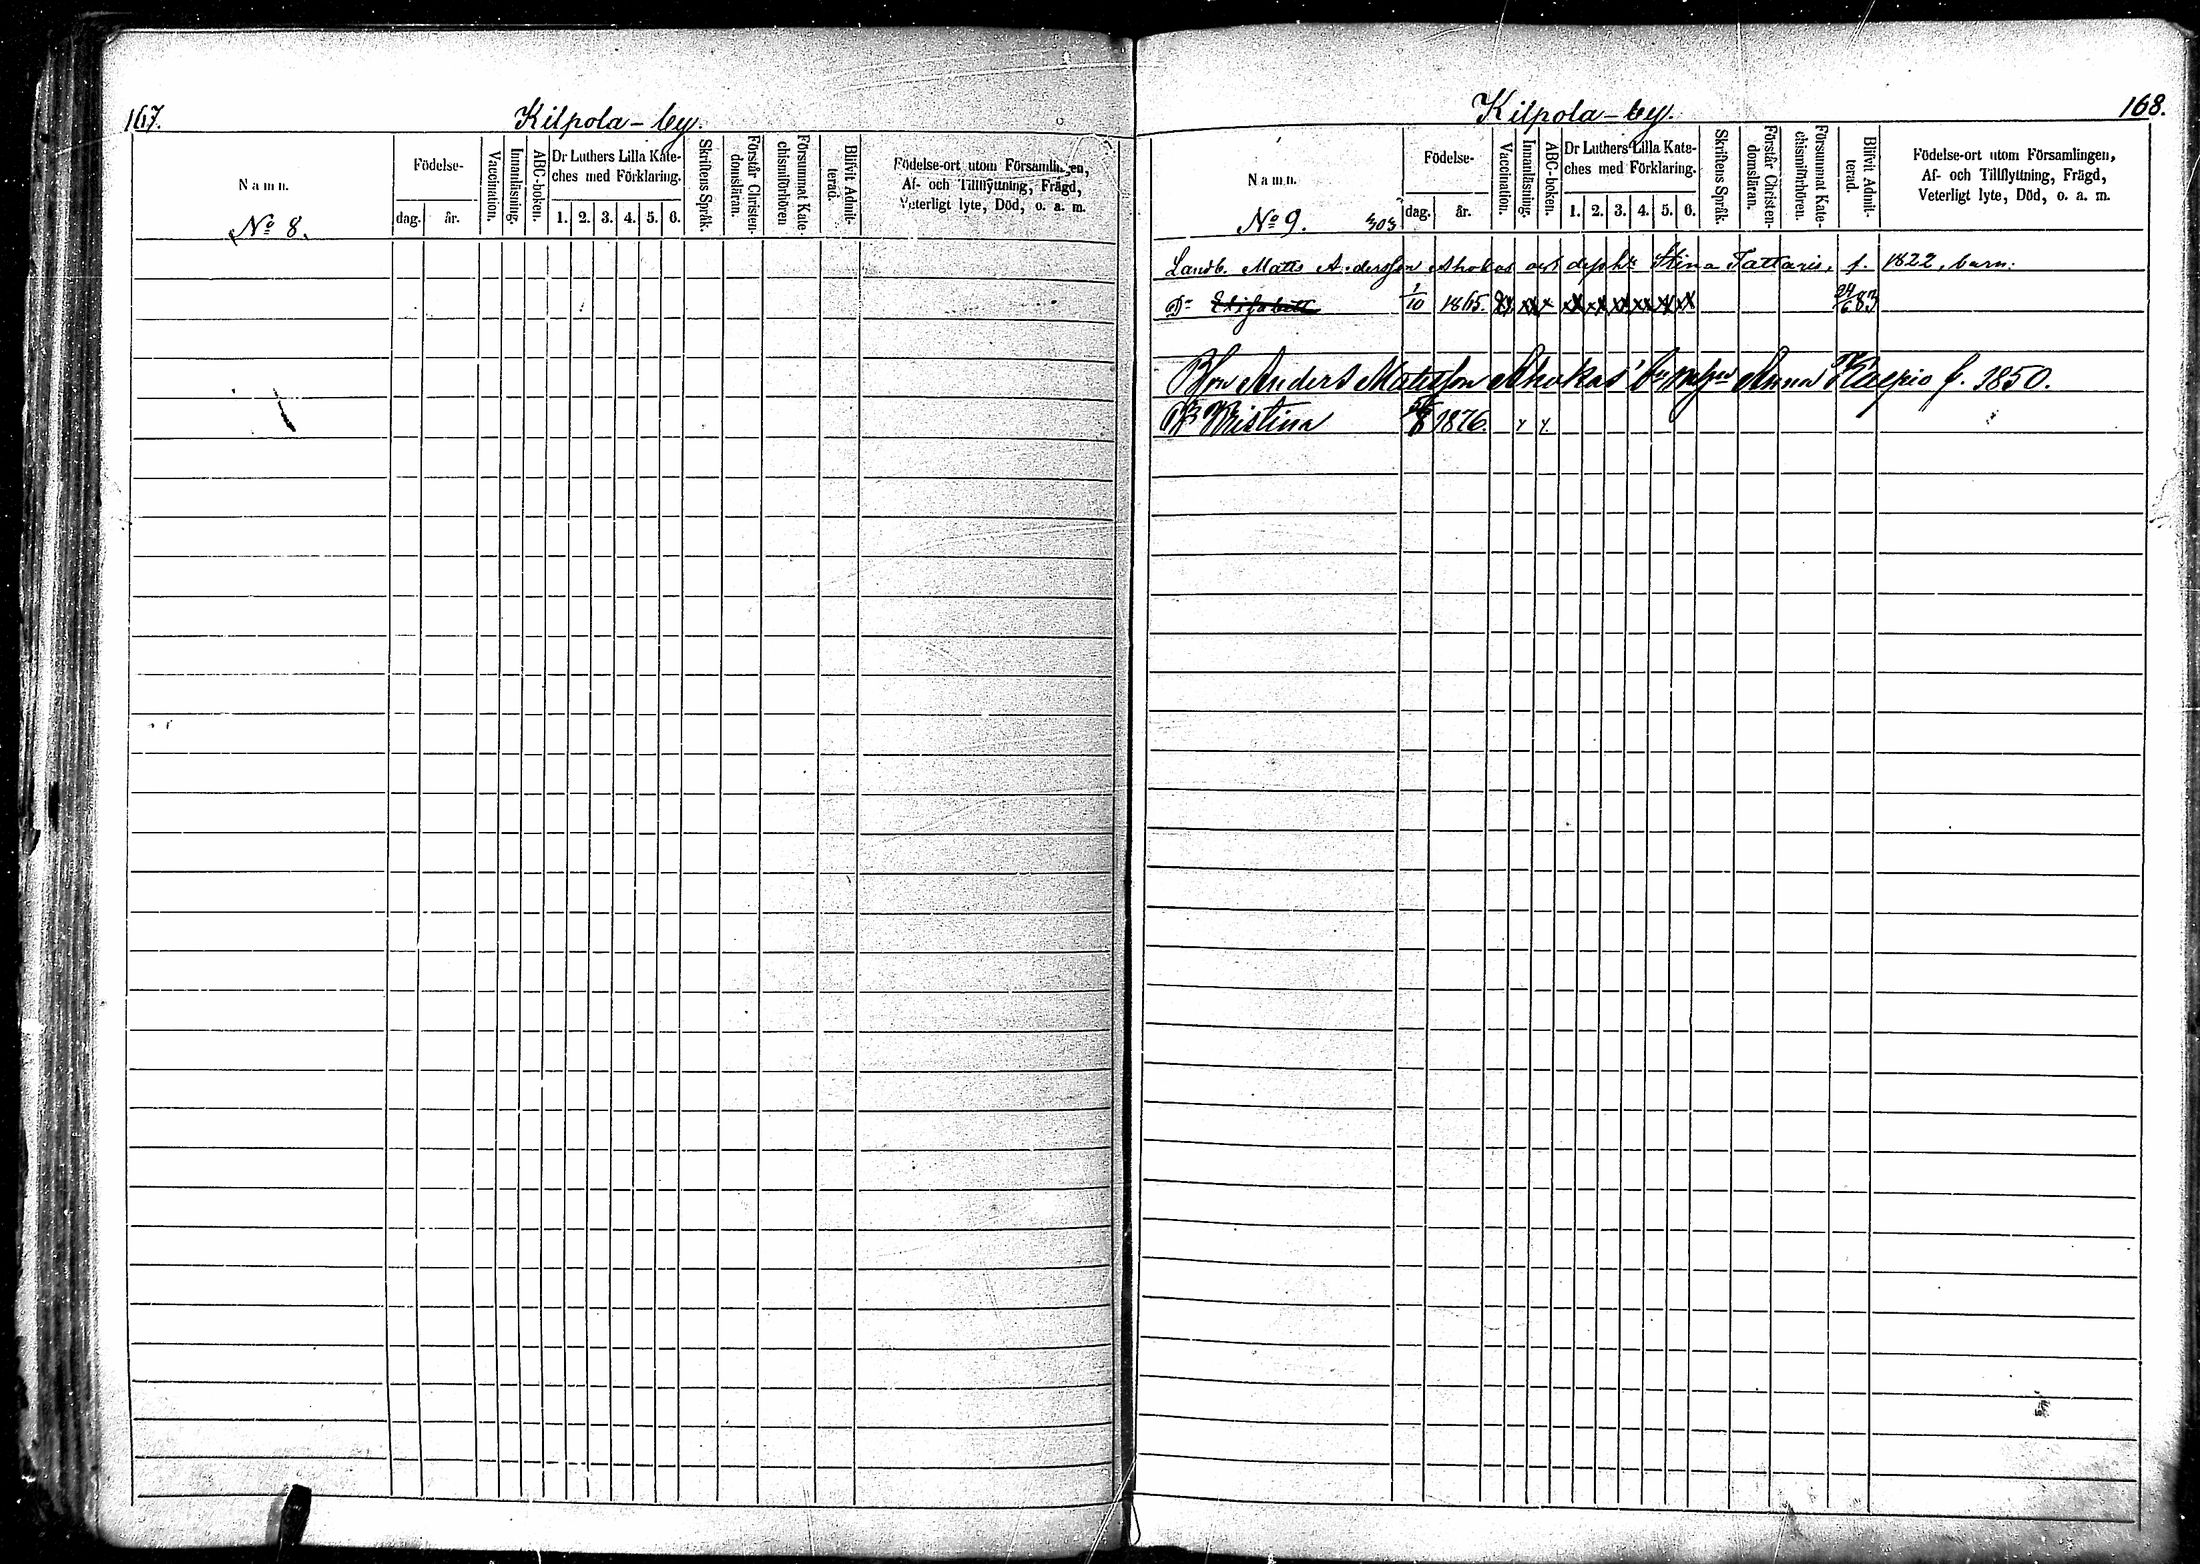 167.
Kilpola-by.
Namn.
No 8.
Födelse-
dag.
år.
Vaccination.
Innanläsning.
ABC-boken.
Dr Luthers Lilla Kate-
ches med Förklaring.
1. 2. 3. 4. 5. 6.
Skriftens Språk.
Förstår Christen-
domsläran.
Försummat Kate-
chismiförhören
Blifvit Admit-
terad.
Födelse-ort utom Församlingen,
Af- och Tillflyttning, Frägd,
Veterligt lyte, Död, o. a. m.
Kilpola-by.
168.
Namn.
No 9.
303
Födelse-
dag.
år.
Vaccination.
Innanläsning.
ABC-boken.
Dr Luthers Lilla Kate-
ches med Förklaring.
1. 2. 3. 4. 5. 6.
Skriftens Språk.
Förstår Christen-
domsläran.
Försummat Kate-
chismiförhören.
Blifvit Admit-
terad.
Födelse-ort utom Församlingen,
Af- och Tillflyttning, Frägd,
Veterligt lyte, Död, o. a. m.
Landb. Matts Andersson Ahokas och Stina Tattaris, f. 1822, barn:
Dr Elisabett 1/10 1865. 24/6 83
Anders Mattsson Ahokas' Anna Kaipio f. 1850.
Kristina 1876.